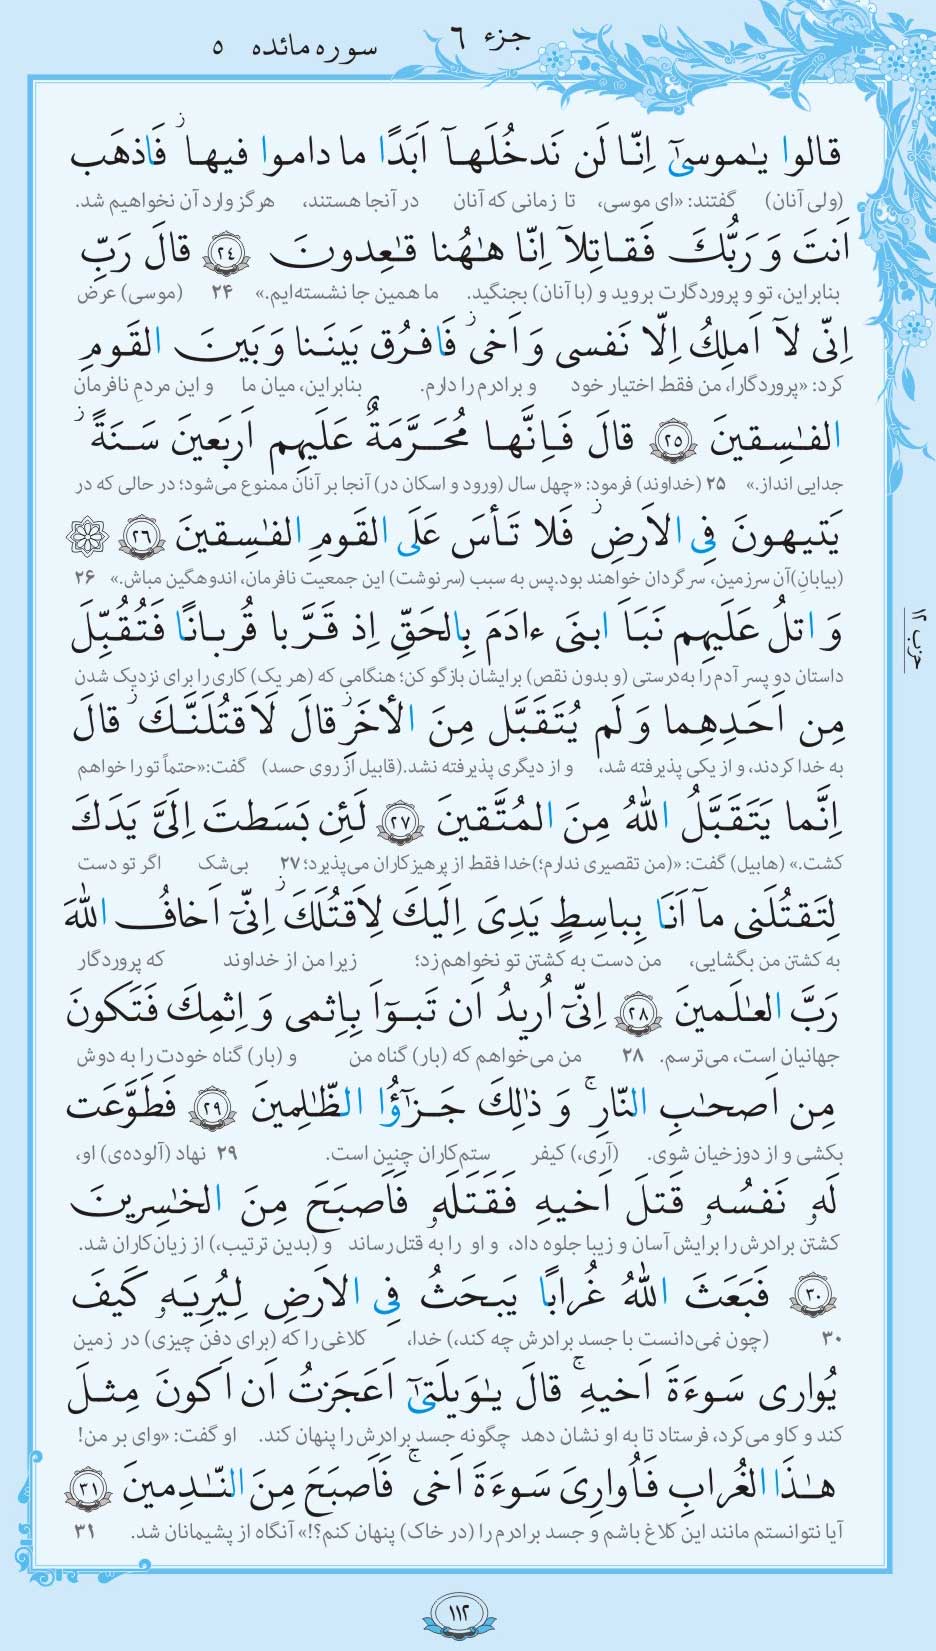 جزء ۶
سوره مائده ۵
قالوا یٰموسیٰٓ اِنّا لَن نَدخُلَهآ اَبَدًا ما داموا فیها ۖ فَاذهَب
(ولی آنان) گفتند: «ای موسی، تا زمانی که آنان در آنجا هستند، هرگز وارد آن نخواهیم شد.
اَنتَ وَ رَبُّكَ فَقاتِلآ اِنّا هٰهُنا قٰعِدونَ ﴿۲۴﴾ قالَ رَبِّ
بنابراین، تو و پروردگارت بروید و (با آنان) بجنگید. ما همین جا نشسته‌ایم.» ۲۴ (موسی) عرض
اِنّی لآ اَملِكُ اِلّا نَفسی وَ اَخی ۖ فَافرُق بَینَنا وَ بَینَ القَومِ
کرد: «پروردگارا، من فقط اختیار خود و برادرم را دارم. بنابراین، میان ما و این مردمِ نافرمان
الفٰسِقینَ ﴿۲۵﴾ قالَ فَاِنَّها مُحَرَّمَةٌ عَلَیهِم اَربَعینَ سَنَةً ۛ
جدایی انداز.» ۲۵ (خداوند) فرمود: «چهل سال (ورود و اسکان در) آنجا بر آنان ممنوع می‌شود؛ در حالی که در
یَتیهونَ فِی الاَرضِ ۚ فَلا تَأسَ عَلَی القَومِ الفٰسِقینَ ﴿۲۶﴾
(بیابانِ) آن سرزمین، سرگردان خواهند بود. پس به سبب (سرنوشت) این جمعیت نافرمان، اندوهگین مباش.» ۲۶
وَ اتلُ عَلَیهِم نَبَاَ ابنَی ءادَمَ بِالحَقِّ اِذ قَرَّبا قُربانًا فَتُقُبِّلَ
داستان دو پسر آدم را به‌درستی (و بدون نقص) برایشان بازگو کن؛ هنگامی که (هر یک) کاری را برای نزدیک شدن
مِن اَحَدِهِما وَ لَم یُتَقَبَّل مِنَ الأخَرِ قالَ لَاَقتُلَنَّكَ ۖ قالَ
به خدا کردند، و از یکی پذیرفته شد، و از دیگری پذیرفته نشد. (قابیل از روی حسد) گفت: «حتماً تو را خواهم
اِنَّما یَتَقَبَّلُ اللّٰهُ مِنَ المُتَّقینَ ﴿۲۷﴾ لَئِن بَسَطتَ اِلَیَّ یَدَكَ
کشت.» (هابیل) گفت: «(من تقصیری ندارم؛) خدا فقط از پرهیزکاران می‌پذیرد؛ ۲۷ بی‌شک اگر تو دست
لِتَقتُلَنی مآ اَنَا بِباسِطٍ یَدِیَ اِلَیكَ لِاَقتُلَكَ ۖ اِنّیٓ اَخافُ اللّٰهَ
به کشتن من بگشایی، من دست به کشتن تو نخواهم زد؛ زیرا من از خداوند که پروردگار
رَبَّ العٰلَمینَ ﴿۲۸﴾ اِنّیٓ اُریدُ اَن تَبوٓاَ بِاِثمی وَ اِثمِكَ فَتَكونَ
جهانیان است، می‌ترسم. ۲۸ من می‌خواهم که (بار) گناه من و (بار) گناه خودت را به دوش
مِن اَصحٰبِ النّارِ ۚ وَ ذٰلِكَ جَزٰٓؤُا الظّٰلِمینَ ﴿۲۹﴾ فَطَوَّعَت
بکشی و از دوزخیان شوی. (آری،) کیفر ستم‌کاران چنین است. ۲۹ نهاد (آلوده‌ی) او،
لَهو نَفسُهو قَتلَ اَخیهِ فَقَتَلَهو فَاَصبَحَ مِنَ الخٰسِرینَ
کشتن برادرش را برایش آسان و زیبا جلوه داد، و او را به قتل رساند و (بدین ترتیب،) از زیان‌کاران شد.
﴿۳۰﴾ فَبَعَثَ اللّٰهُ غُرابًا یَبحَثُ فِی الاَرضِ لِیُرِیَهو كَیفَ
۳۰ (چون نمی‌دانست با جسد برادرش چه کند،) خدا، کلاغی را که (برای دفن چیزی) در زمین
یُواری سَوءَةَ اَخیهِ ۚ قالَ یٰوَیلَتیٰٓ اَعَجَزتُ اَن اَكونَ مِثلَ
کند و کاو می‌کرد، فرستاد تا به او نشان دهد چگونه جسد برادرش را پنهان کند. او گفت: «وای بر من!
هٰذَا الغُرابِ فَاُواریَ سَوءَةَ اَخی ۚ فَاَصبَحَ مِنَ النّٰدِمینَ ﴿۳۱﴾
آیا نتوانستم مانند این کلاغ باشم و جسد برادرم را (در خاک) پنهان کنم؟!» آنگاه از پشیمانان شد. ۳۱
حزب ۱۲
۱۱۲